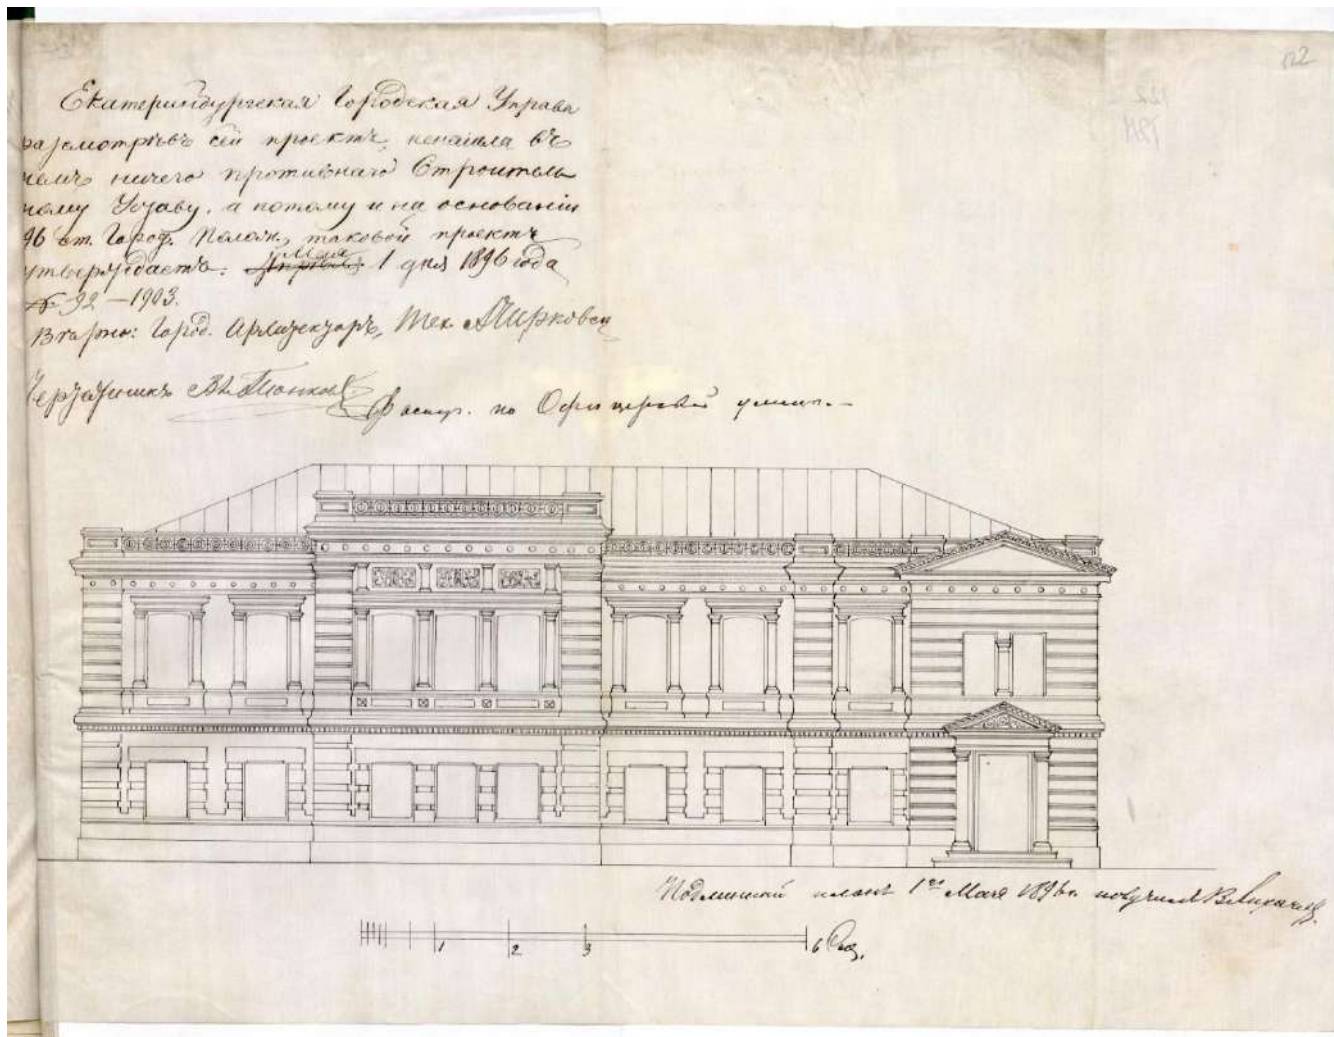 122
Екатеринбургская Городская Управа
разсмотрѣвъ сей проектъ, ненашла въ
немъ ничего противнаго Строитель
ному Уставу, а потому и на основаніи
96 ст. Город. Полож., таковой проектъ
утверждаетъ. Апрѣля Мая 1 дня 1896 года
№ 92 – 1903.
Вѣрно: Город. Архитекторъ, Тех. АЧирковъ
Чертежникъ
Фасад. по Офицерской улицѣ.
Подлинный планъ 1го Мая 1896 г. получилъ
1 2 3 6 Саж.